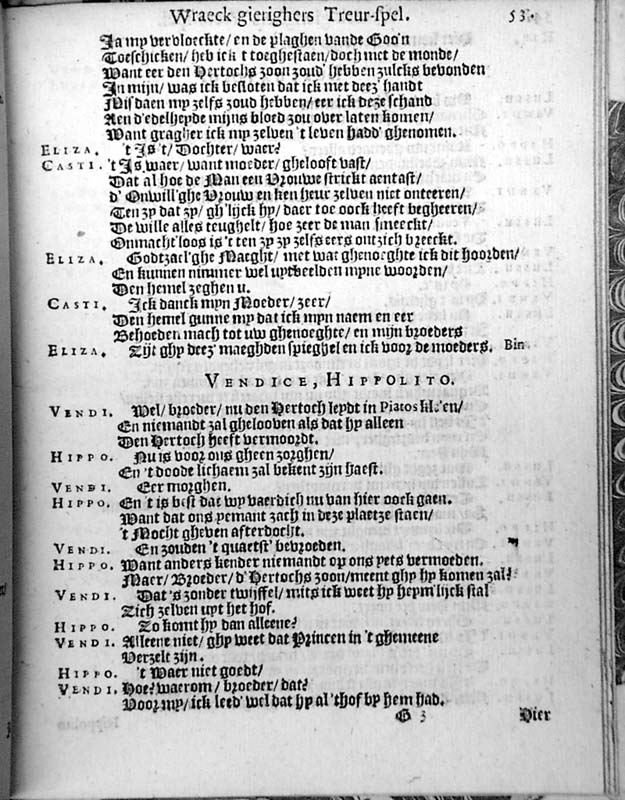 Wraeck gierighers Treur-spel. 53.
Ja my vervloeckte/ en de plaghen vande Goo'n
Toeschicken/ heb ick 't toeghestaen/ doch met de monde/
Want eer den Hertochs zoon zoud' hebben zulcks bevonden
In mijn/ was ick besloten dat ick met deez' handt
Misdaen my zelfs zoud hebben/ eer ick deze schand
Aen d'edelheyde mijns bloed zou over laten komen/
Want gragher ick my zelven 't leven hadd' ghenomen.
ELIZA. 't Is 't/ Dochter/ waer?
CASTI. 't Is waer/ want moeder/ ghelooft vast/
Dat al hoe de Man een Vrouwe strickt aentast/
d' Onwill'ghe Vrouw en ken heur zelven niet onteeren/
Ten zy dat zy/ gh'lijck hy/ daer toe oock heeft begheeren/
De wille alles teughelt/ hoe zeer de man smeeckt/
Onmacht'loos is 't ten zy zy zelfs eers ontzich breeckt.
ELIZA. Godtzael'ghe Maeght/ met wat ghenoeghte ick dit hoorden/
En kunnen nimmer wel uytbeelden myne woorden/
Den hemel zeghen u.
CASTI. Ick danck myn Moeder/ zeer/
Den hemel gunne my dat ick myn naem en eer
Behoeden mach tot uw ghenoeghte/ en mijn broeders
ELIZA. Zijt ghy deez' maeghden spieghel en ick voor de moeders. Bin
VENDICE, HIPPOLITO.
VENDI. Wel/ broeder/ nu den Hertoch leydt in Piatos kle'en/
En niemandt zal ghelooven als dat hy alleen
Den Hertoch heeft vermoordt.
HIPPO. Nu is voor ons gheen zorghen/
En 't doode lichaem zal bekent zijn haest.
VENDI. Eer morghen.
HIPPO. En 't is best dat wy vaerdich nu van hier oock gaen.
Want dat ons yemant zach in deze plaetze staen/
't Mocht gheven afterdocht.
VENDI. En zouden 't quaetst' bevroeden.
HIPPO. Want anders kender niemandt op ons yets vermoeden.
Maer/ Broeder/ d' Hertochs zoon/ meent ghy hy komen zal?
VENDI. Dat 's zonder twijffel/ mits ick weet hy heym'lijck stal
Zich zelven uyt het hof.
HIPPO. Zo komt hy dan alleene?
VENDI. Alleene niet/ ghy weet dat Princen in 't ghemeene
Verzelt zijn.
HIPPO. 't Waer niet goedt/
VENDI. Hoe? waerom/ broeder/ dat?
Voor my/ ick leed' wel dat hy al 'thof by hem had.
G 3 Hier